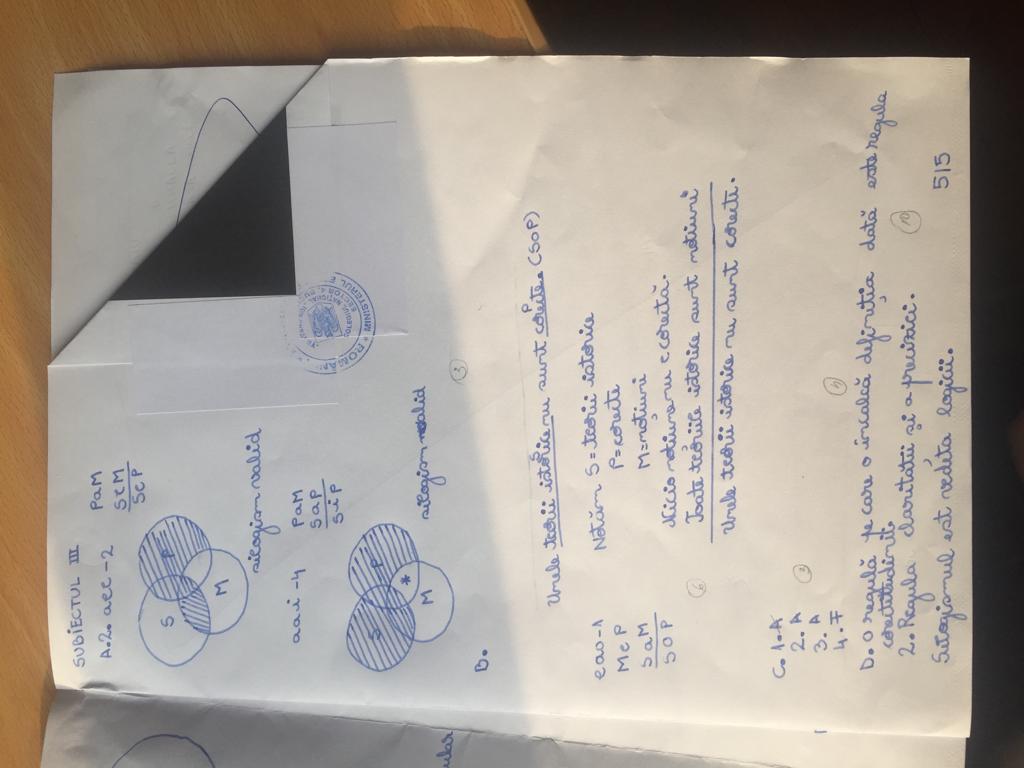 SUBIECTUL III
A.2. aee-2
PaM
SeM
SeP
S
P
M
silogism valid
aai -4
PaM
SaP
SiP
S
P
M
*
silogism valid
3
B.
Unele teorii istorice nu sunt corecte (SoP)
S
P
eao-1
MeP
SaM
SOP
Notăm S = teorii istorice
P = corecte
M = noțiuni
Nicio noțiune nu e corectă.
Toate teoriile istorice sunt noțiuni
Unele teorii istorice nu sunt corecte.
6
C. 1. A
2. A
3. A
4. F
D. o regulă pe care o încalcă definiția dată este regula
2. Regula clarității și a preciziei.
10
Silogismul est redita logicii.
5|5